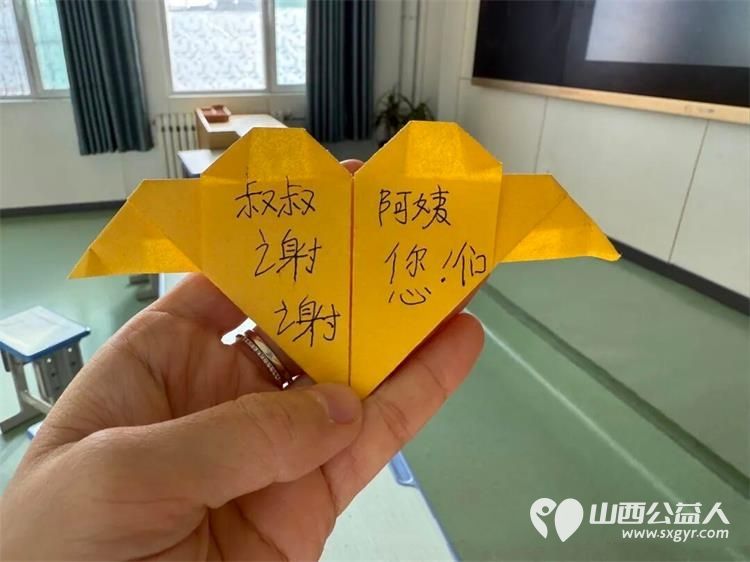 叔叔 阿姨
谢 您!们
谢
山西公益人
www.sxgyr.com